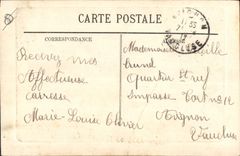 CARTE POSTALE
CORRESPONDANCE
Recevez mes
Affectueuse
caresse
Marie-Louise Olivier
Mademoiselle
Quartier neuf
Impasse n° 12
Avignon
Vaucluse
VAUCLUSE